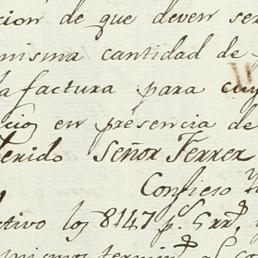 cion de que deven ser
misma cantidad de
la factura para cuy
cio en presencia de
erido Señor Ferrer
Confieso
ctivo los 8147 p.s 5 rr.s